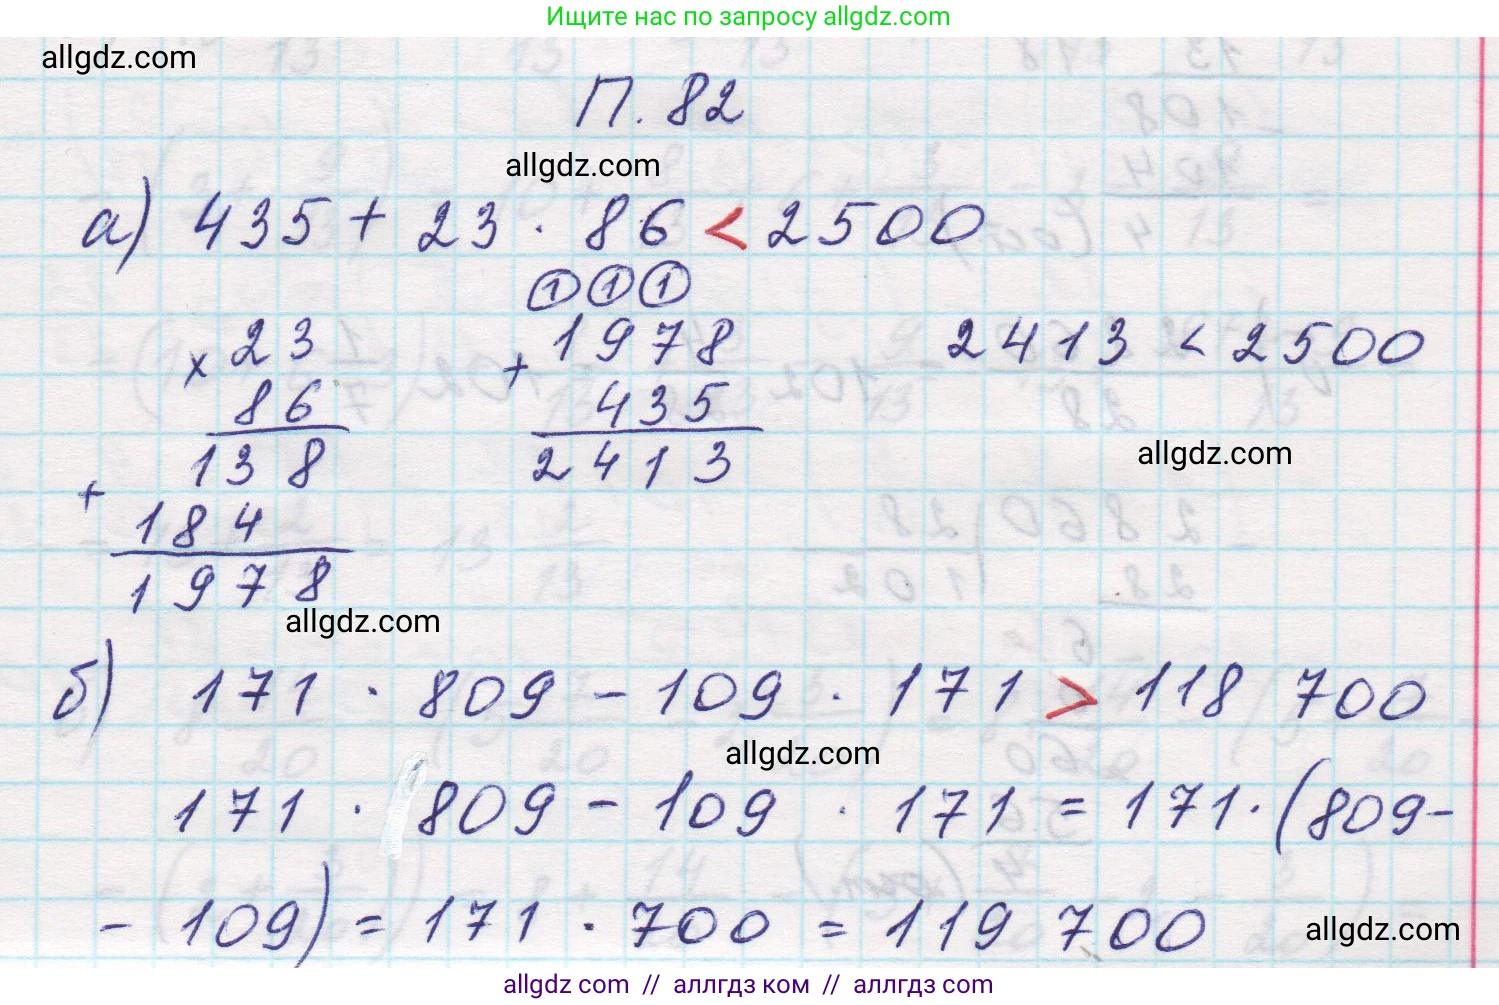 Ищите нас по запросу allgdz.com
allgdz.com
П. 82
allgdz.com
а) 435 + 23 · 86 < 2500
1 1 1
× 23
86
138
+ 184
1978
+ 1978
435
2413
2413 < 2500
allgdz.com
allgdz.com
б) 171 · 809 - 109 · 171 > 118 700
allgdz.com
171 · 809 - 109 · 171 = 171 · (809 -
- 109) = 171 · 700 = 119 700
allgdz.com
allgdz.com // аллгдз ком // аллгдз.com